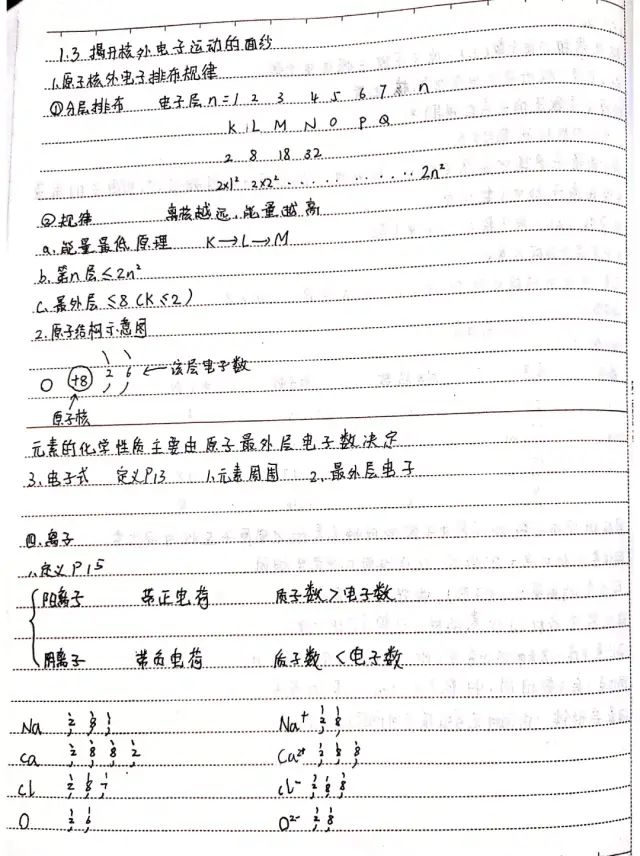 1.3 揭开核外电子运动的面纱
1.原子核外电子排布规律
①分层排布 电子层 n=1 2 3 4 5 6 7 8 n
K L M N O P Q
2 8 18 32
2x1² 2x2² ............ 2n²
②规律 离核越远,能量越高
a.能量最低原理 K→L→M
b.第n层≤2n²
C.最外层≤8(K≤2)
2.原子结构示意图
O +8 2 6 ←该层电子数
原子核
元素的化学性质主要由原子最外层电子数决定
3.电子式 定义P13 1.元素周围 2.最外层电子
四.离子
1.定义P15
阳离子 带正电荷 质子数>电子数
阴离子 带负电荷 质子数<电子数
Na 2 8 1 Na⁺ 2 8
Ca 2 8 8 2 Ca²⁺ 2 8 8
Cl 2 8 7 Cl⁻ 2 8 8
O 2 6 O²⁻ 2 8